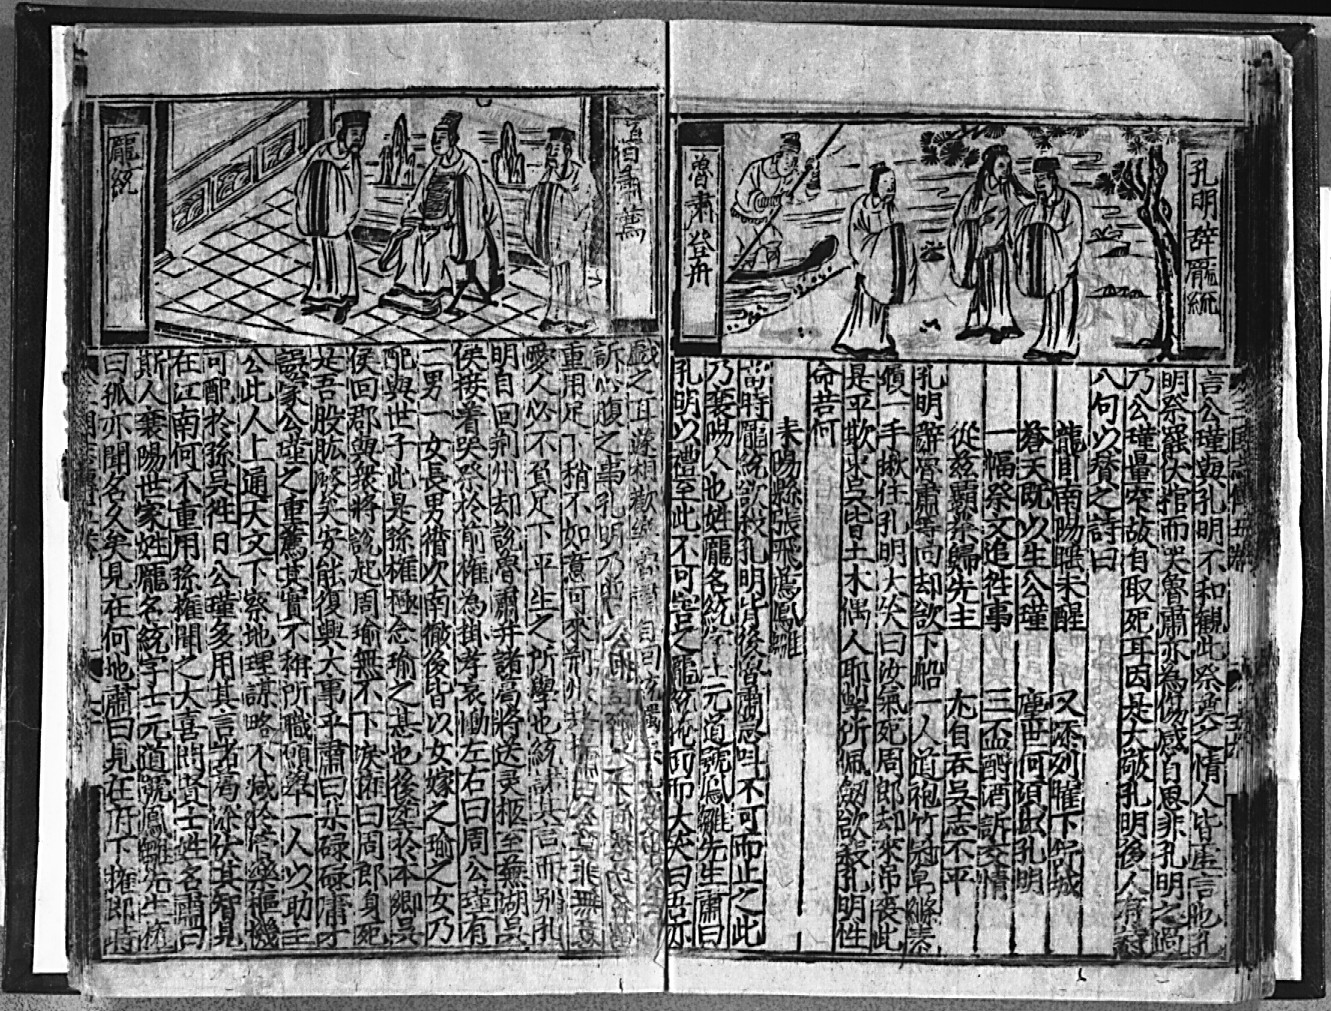 孔明辭龐統
魯肅登舟
言公瑾與孔明不和觀此祭奠之情人皆虛言也孔
明祭罷伏棺而哭魯肅亦為傷感自思非孔明之過
乃公瑾量窄故自取死耳因是大敬孔明後人有詩
八句以賛之詩曰
龍自南陽睡未醒 又添列曜下舒城
蒼天既以生公瑾 塵世何須出孔明
一幅祭文追往事 三盃酹酒訴交情
從茲顯桑歸先主 尤自吞吳志不平
孔明辭魯肅等向却欲下船一人道袍竹冠皂絛素
履一手揪住孔明大笑曰汝氣死周郎却來吊喪此
是平欺東吳皆土木偶人耶掣所佩劔欲殺孔明性
命若何
耒陽縣張飛薦鳳雛
當時龐統欲殺孔明背後魯肅急叱不可而止之此
乃襄陽人也姓龐名統字士元道號鳳雛先生肅曰
孔明以禮至此不可害之龐統掩面而大笑曰吾亦
魯肅薦
龐統
戲之耳遂相歡
訴心腹之事孔明乃
重用足下稍不如意可來荊州
愛人必不負足下平生之所學也統諾其言而別孔
明自回荊州却說魯肅并諸當將送灵柩至蕪湖吳
侯接着哭祭於前權為掛孝哀慟左右曰周公瑾有
二男一女長男循次南徹後皆以女嫁之瑜之女乃
配與世子此是孫權極念瑜之甚也後塟於本鄉吳
侯回郡與衆將說起周瑜無不下淚權曰周郎身死
是吾股肱廢矣安能復興大事乎肅曰肅碌碌庸才
誤蒙公瑾之重薦其實不称所職願舉一人以助主
公此人上通天文下察地理謀略不減於管樂樞機
可配於孫吳徃日公瑾多用其言諸葛深伏其智見
在江南何不重用孫權聞之大喜問賢士姓名肅曰
斯人襄陽世家姓龐名統字士元道號鳳雛先生統
曰孤亦聞名久矣見在何地肅曰見在府下權即時